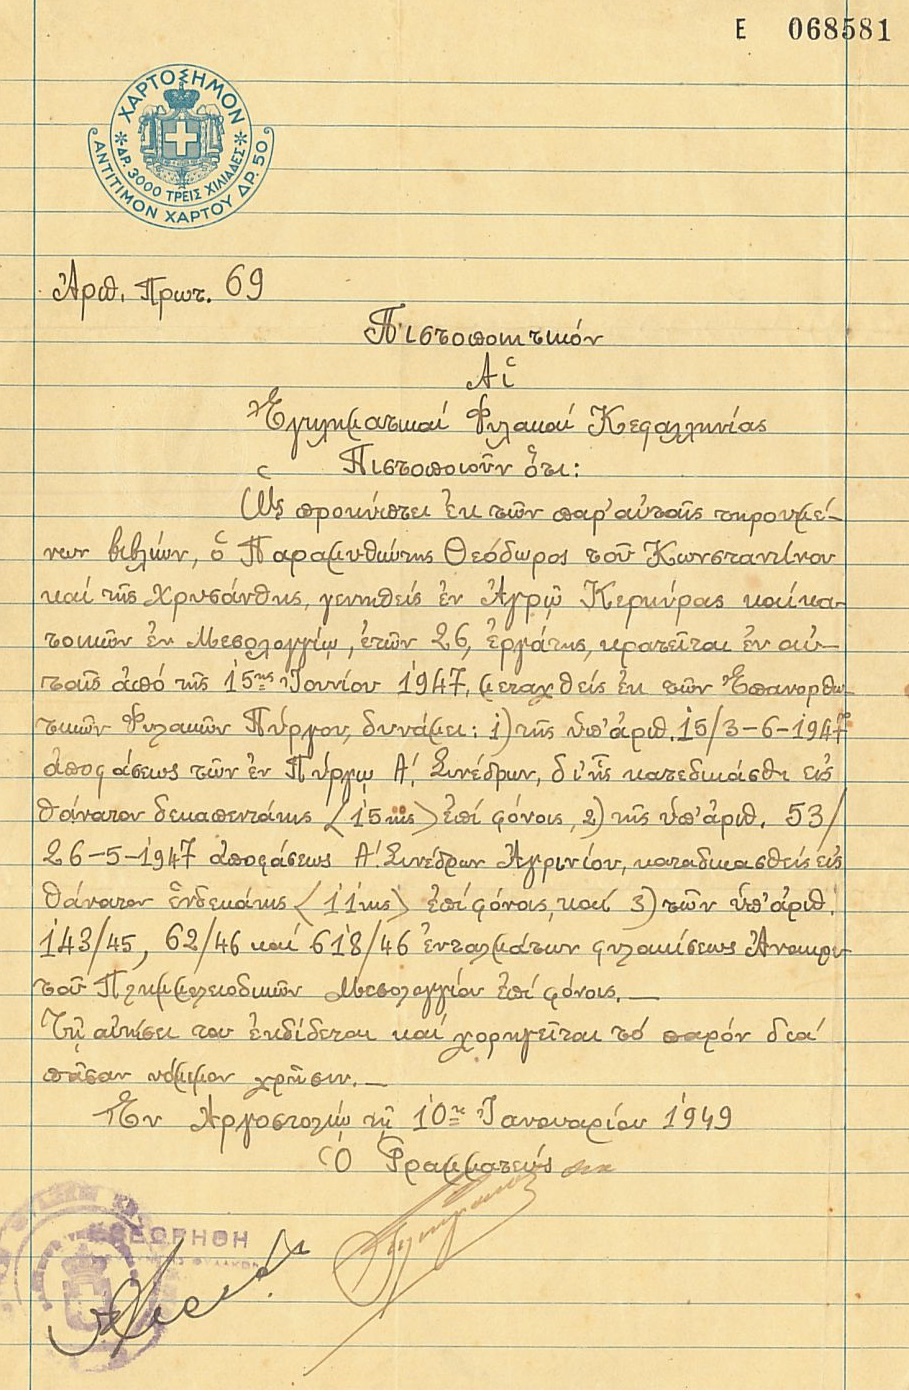 Ε 068581
ΧΑΡΤΟΣΗΜΟΝ
ΔΡ. 3000 ΤΡΕΙΣ ΧΙΛΙΑΔΕΣ
ΑΝΤΙΤΙΜΟΝ ΧΑΡΤΟΥ ΔΡ. 50
Ἀριθ. Πρωτ. 69
Πιστοποιητικόν
Αἱ
Ἐγκληματικαί Φυλακαί Κεφαλληνίας
Πιστοποιοῦν ὅτι:
Ὡς προκύπτει ἐκ τῶν παρ' αὐταῖς τηρουμέ-
νων βιβλίων, ὁ Παραμυθιώτης Θεόδωρος τοῦ Κωνσταντίνου
καί τῆς Χρυσάνθης, γεννηθείς ἐν Ἀγρῷ Κερκύρας καί κα-
τοικῶν ἐν Μεσολογγίῳ, ἐτῶν 26, ἐργάτης, κρατεῖται ἐν αὐ-
ταῖς ἀπό τῆς 15ης Ἰουνίου 1947, μεταχθείς ἐκ τῶν Ἐπανορθω-
τικῶν Φυλακῶν Πύργου, δυνάμει: 1) τῆς ὑπ' ἀριθ. 15/3-6-1947
ἀποφάσεως τῶν ἐν Πύργῳ Α΄. Συνέδρων, δι' ἧς κατεδικάσθη εἰς
θάνατον δεκαπεντάκις <15κις> ἐπί φόνοις, 2) τῆς ὑπ' ἀριθ. 53/
26-5-1947 ἀποφάσεως Α΄. Συνέδρων Ἀγρινίου, καταδικασθείς εἰς
θάνατον ἑνδεκάκις <11κις> ἐπί φόνοις, καί 3) τῶν ὑπ' ἀριθ.
143/45, 62/46 καί 618/46 ἐνταλμάτων φυλακίσεως Ἀνακρι-
τοῦ Πλημμελειοδικῶν Μεσολογγίου ἐπί φόνοις.—
Τῇ αἰτήσει του ἐκδίδεται καί χορηγεῖται τό παρόν διά
πᾶσαν νόμιμον χρῆσιν.—
Ἐν Ἀργοστολίῳ τῇ 10ῃ Ἰανουαρίου 1949
Ὁ Γραμματεύς
ΕΘΕΩΡΗΘΗ